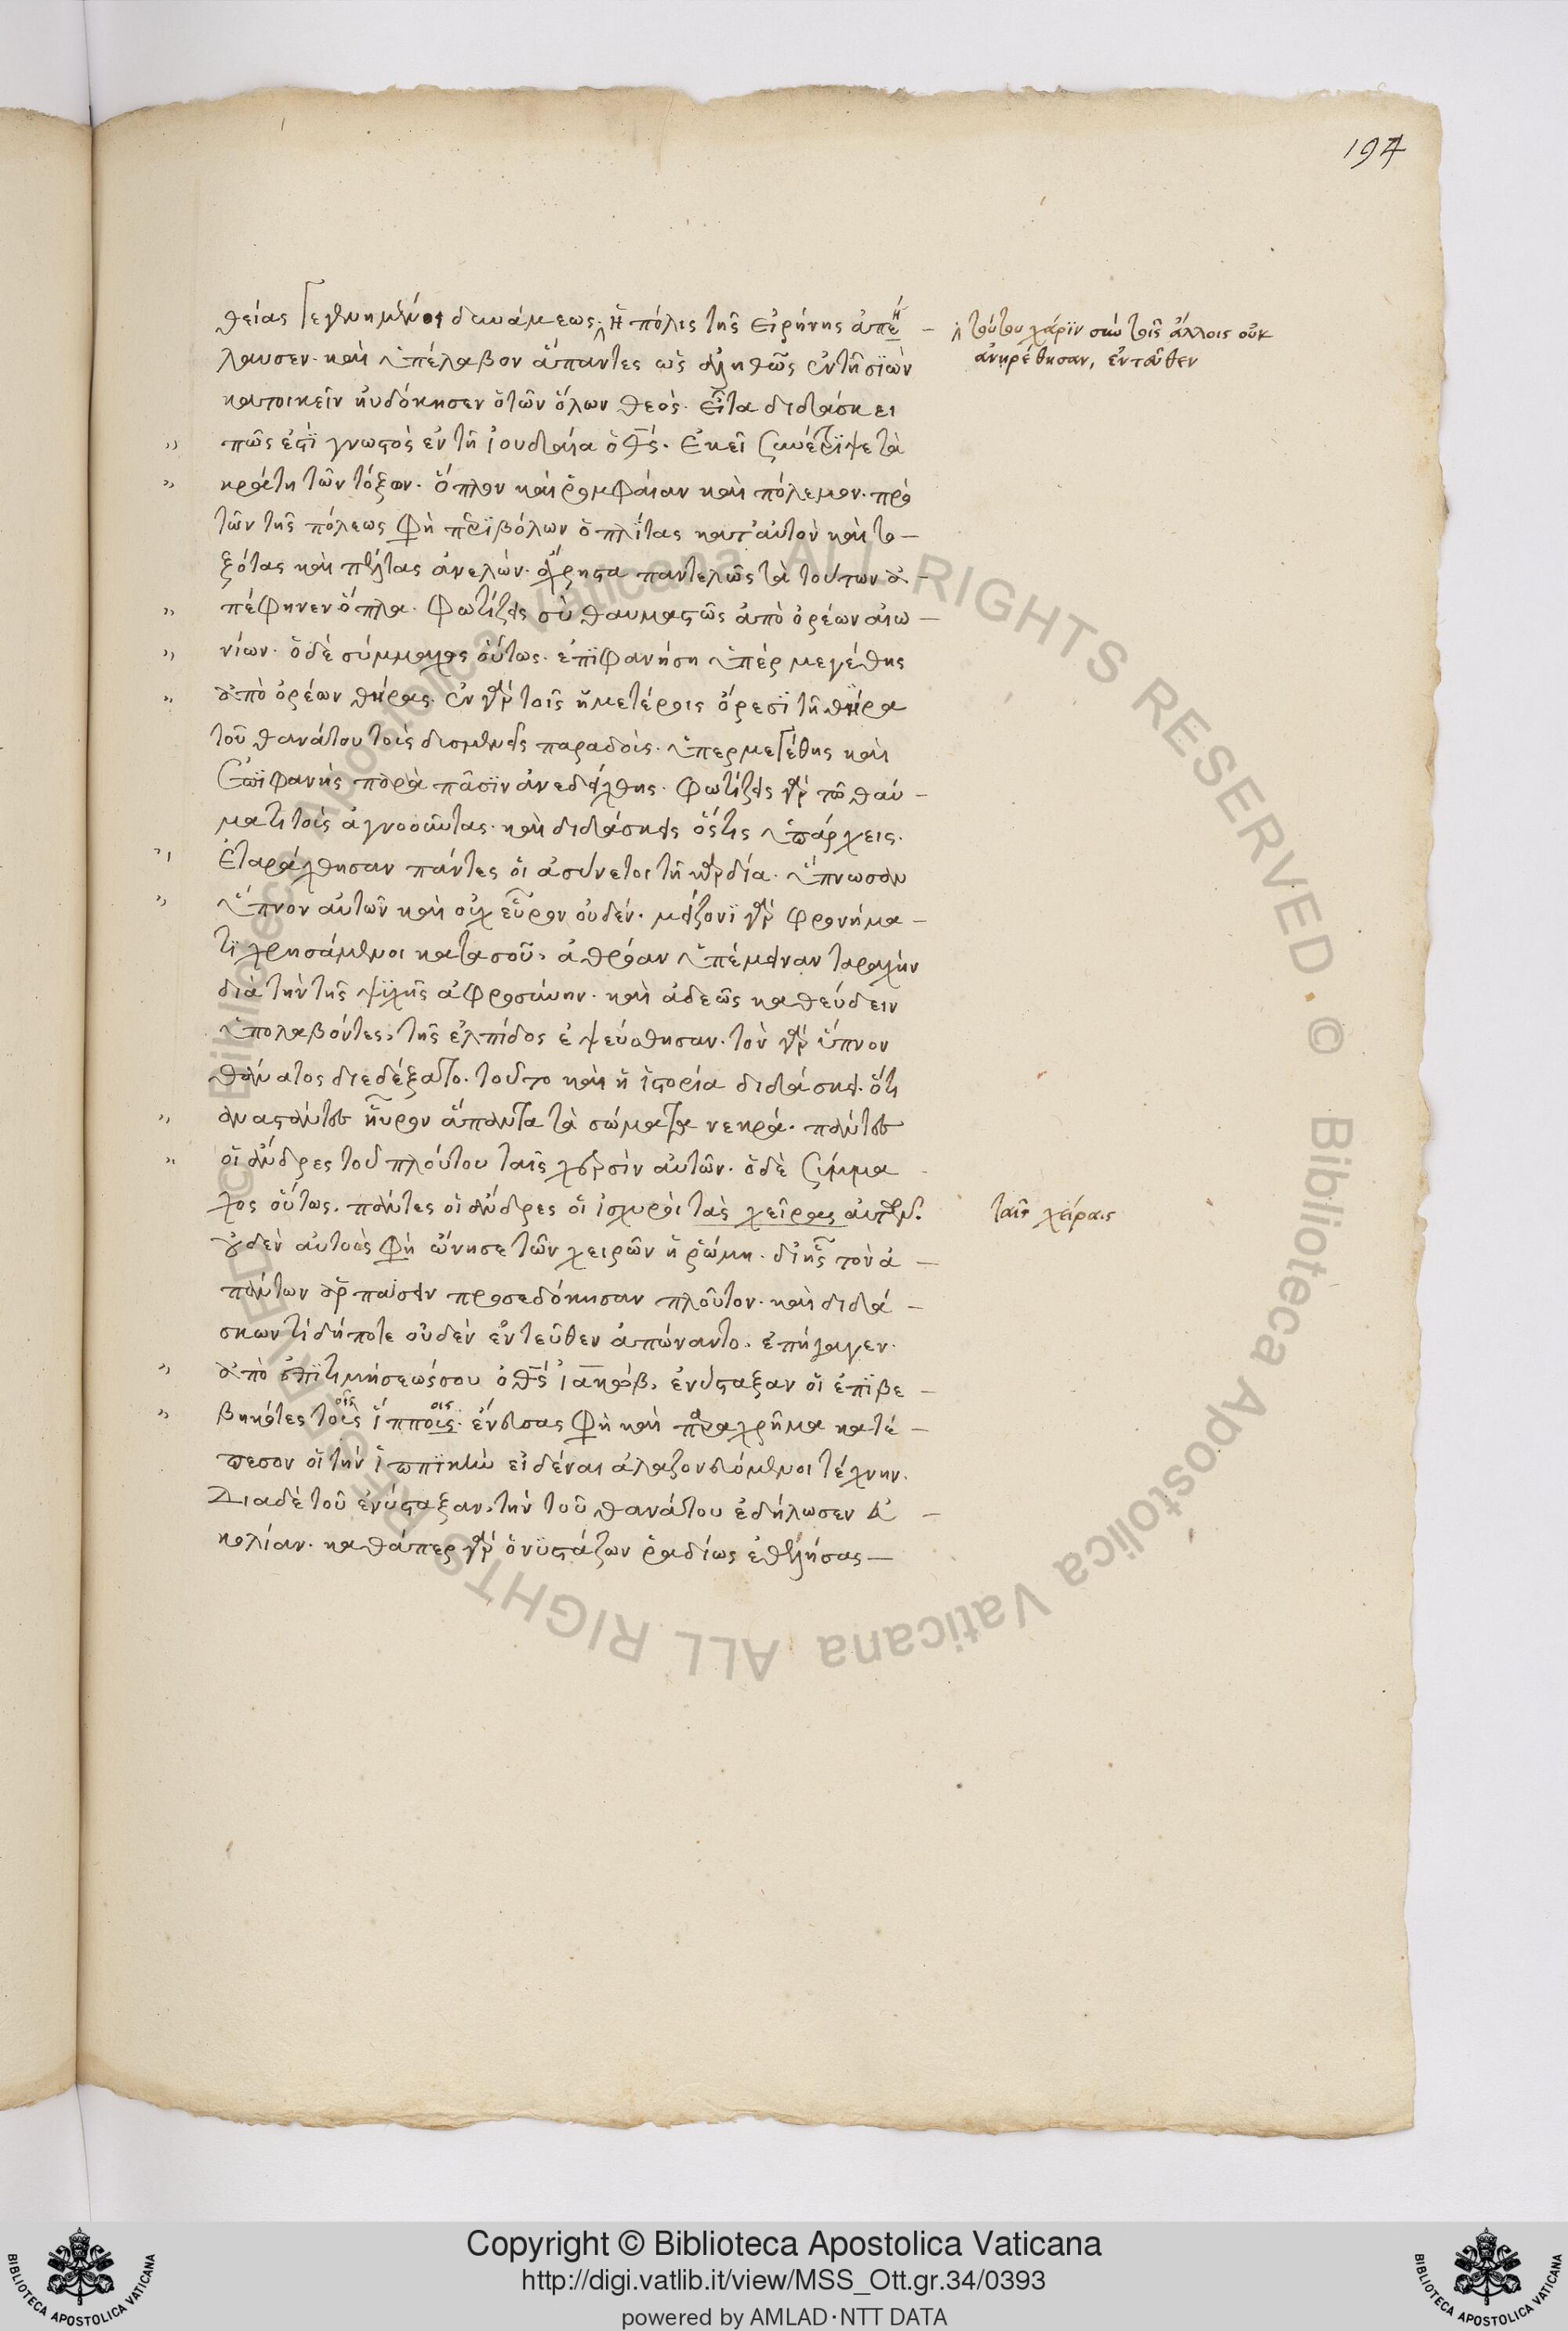 194
θείας γεγενημένοι δυνάμεως. ἡ πόλις τῆς εἰρήνης ἀπέ –
λαυσεν. καὶ ὑπέλαβον ἅπαντες ὡς ἀληθῶς ἐν τῇ σιὼν
κατοικεῖν ηὐδόκησεν ὁ τῶν ὅλων θεός. εἶτα διδάσκει
πῶς ἐστὶ γνωστὸς ἐν τῇ ἰουδαία ὁ θς. Ἐκεῖ συνέτριψε τὰ
κράτη τῶν τόξων. ὅπλον καὶ ῥομφαίαν καὶ πόλεμον. πρὸ
τῶν τῆς πόλεως φὴ περιβόλων ὁπλίτας κατ' αὐτὸν καὶ το –
ξότας καὶ πελτάς ἀνελών. ἄχρηστα παντελῶς τὰ τούτων ἀ –
πέφηνεν ὅπλα. Φωτίζεις σὺ θαυμαστῶς ἀπὸ ὀρέων αἰω –
νίων. ὁ δὲ σύμμαχος οὕτως. ἐπιφανὴς ἦ ὑπέρ μεγέθης
ἀπὸ ὀρέων θήρας. ἐν γὰρ τοῖς ἡμετέροις ὄρεσι τῇ θήρα
τοῦ θανάτου τοὺς δυσμενεῖς παραδούς. ὑπερμεγέθης καὶ
ἐπιφανὴς παρὰ πᾶσιν ἀνεδείχθης. φωτίζεις γὰρ τῷ θαύ –
ματι τοὺς ἀγνοοῦντας. καὶ διδάσκεις ὅστις ὑπάρχεις.
Ἐταράχθησαν πάντες οἱ ἀσύνετοι τῇ καρδία. ὕπνωσαν
ὕπνον αὐτῶν καὶ οὐχ εὗρον οὐδέν. μείζονι γὰρ φρονήμα –
τι χρησάμενοι κατὰ σοῦ, ἀθρόαν ὑπέμειναν ταραχὴν
διὰ τὴν τῆς ψυχῆς ἀφροσύνην. καὶ ἀδεῶς καθεύδειν
ὑπολαβόντες, τῆς ἐλπίδος ἐψεύσθησαν. τὸν γὰρ ὕπνον
θάνατος διεδέξατο. τοῦτο καὶ ἡ ἱστορία διδάσκει. ὅτι
ἀναστάντες ηὗρον ἅπαντα τὰ σώματα νεκρά. πάντες
οἱ ἄνδρες τοῦ πλούτου ταῖς χερσὶν αὐτῶν. ὁ δὲ σύμμα
χος οὕτως. πάντες οἱ ἄνδρες οἱ ἰσχυροὶ τὰς χεῖρας αὐτῶν.
οὐδὲν αὐτοὺς φὴ ὤνησε τῶν χειρῶν ἡ ῥώμη. δι' ἧς τὸν ἁ –
πάντων ἁρπάσειν προσεδόκησαν πλοῦτον. καὶ διδά –
σκων τί δήποτε οὐδὲν ἐντεῦθεν ἀπώναντο. ἐπήγαγεν.
ἀπὸ ἐπιτιμήσεώς σου ὁ θς ἰακώβ, ἐνύσταξαν οἱ ἐπιβε –
βηκότες τοῖς ἵπποις. ἔνευσας φὴ καὶ παραχρῆμα κατέ –
πεσον οἱ τὴν ἱππικὴν εἰδέναι ἀλαζονευόμενοι τέχνην.
Διὰ δὲ τοῦ ἐνύσταξαν, τὴν τοῦ θανάτου ἐδήλωσεν εὐ –
κολίαν. καθάπερ γὰρ ὁ νυστάζων ῥαδίως ἐθελήσας –
τούτου χάριν σὺν τοῖς ἄλλοις οὐκ
ἀνῃρέθησαν, ἐνταῦθεν
ταῖς χείραις
Copyright © Biblioteca Apostolica Vaticana
http://digi.vatlib.it/view/MSS_Ott.gr.34/0393
powered by AMLAD·NTT DATA
© Biblioteca Apostolica Vaticana ALL RIGHTS RESERVED
© Biblioteca Apostolica Vaticana ALL RIGHTS RESERVED
BIBLIOTECA APOSTOLICA VATICANA
BIBLIOTECA APOSTOLICA VATICANA